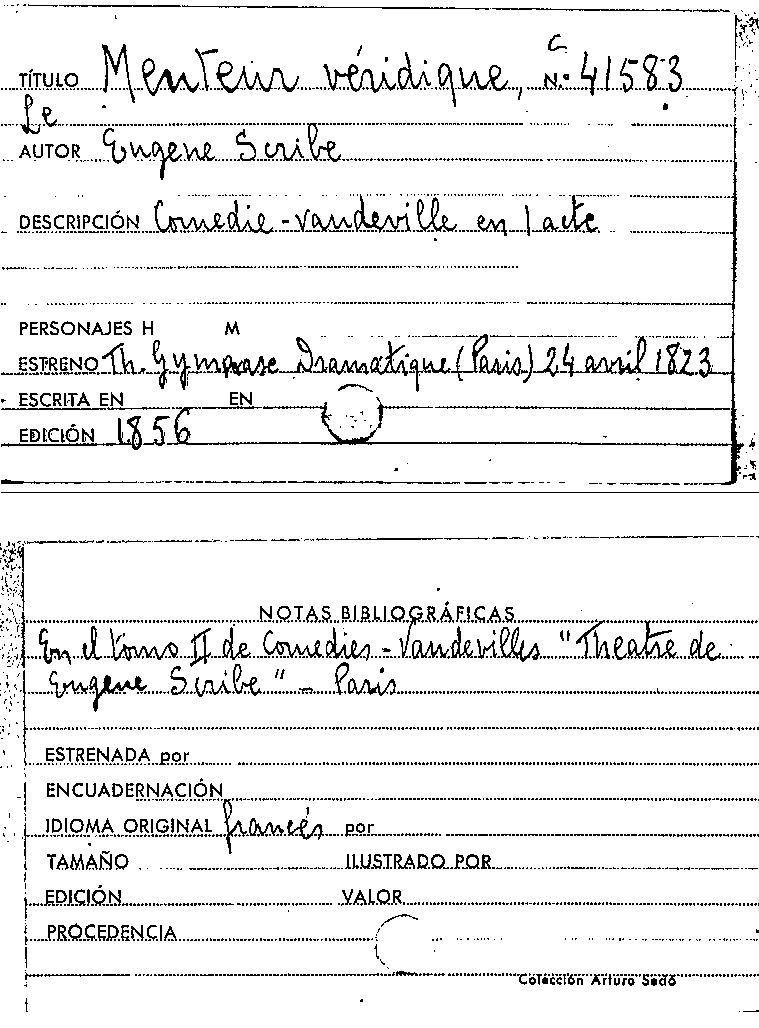 TÍTULO Menteur véridique, C Nº 41583
Le
AUTOR Eugene Scribe
DESCRIPCIÓN Comedie-vaudeville en 1 acte
PERSONAJES H M
ESTRENO Th. Gymnase Dramatique (Paris) 24 avril 1823
ESCRITA EN EN
EDICIÓN 1856
NOTAS BIBLIOGRÁFICAS
En el tomo II de Comedies-Vaudevilles "Theatre de
Eugene Scribe" - Paris
ESTRENADA por
ENCUADERNACIÓN
IDIOMA ORIGINAL francés por
TAMAÑO ILUSTRADO POR
EDICIÓN VALOR
PROCEDENCIA
Colección Arturo Sedó